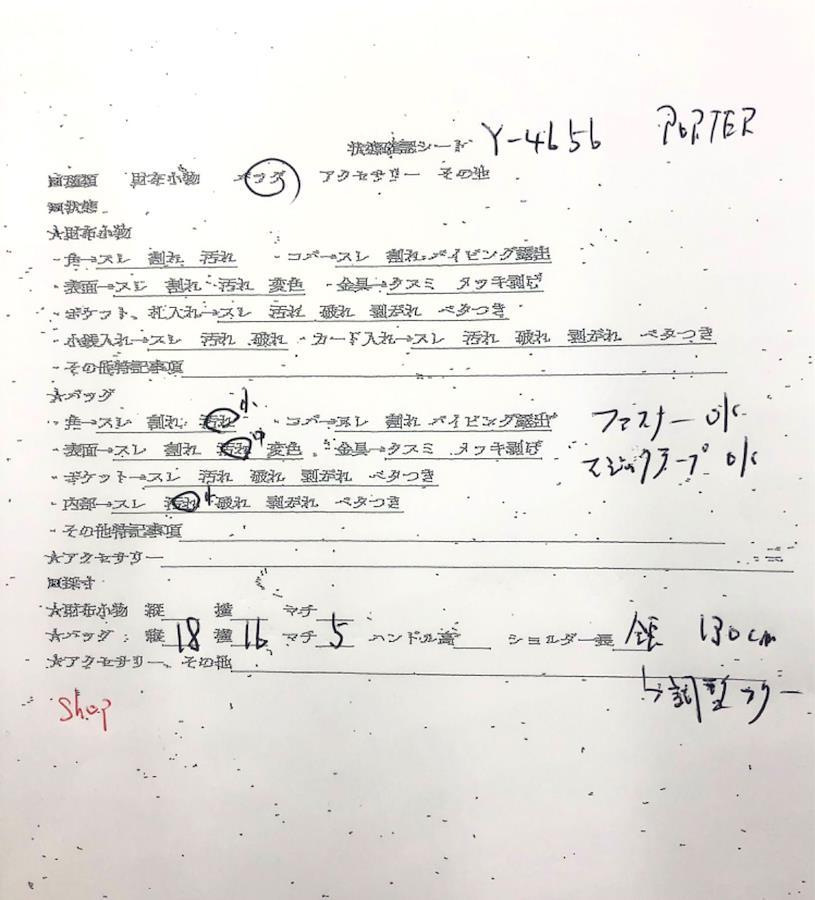 状態確認シート Y-4656 PORTER
■種類 財布小物 バッグ アクセサリー その他
■状態
★財布小物
・角→スレ 割れ 汚れ ・コバ→スレ 割れ パイピング露出
・表面→スレ 割れ 汚れ 変色 ・金具→クスミ メッキ剥げ
・ポケット、札入れ→スレ 汚れ 破れ 剥がれ ベタつき
・小銭入れ→スレ 汚れ 破れ ・カード入れ→スレ 汚れ 破れ 剥がれ ベタつき
・その他特記事項
★バッグ
・角→スレ 割れ 汚れ 小 ・コバ→スレ 割れ パイピング露出 ファスナー OK
・表面→スレ 割れ 汚れ 中 変色 ・金具→クスミ メッキ剥げ マジックテープ OK
・ポケット→スレ 汚れ 破れ 剥がれ ベタつき
・内部→スレ 汚れ 小 破れ 剥がれ ベタつき
・その他特記事項
★アクセサリー
■採寸
★財布小物 縦 横 マチ
★バッグ 縦 18 横 16 マチ 5 ハンドル高 ショルダー長 全長 130cm
★アクセサリー、その他
Shop